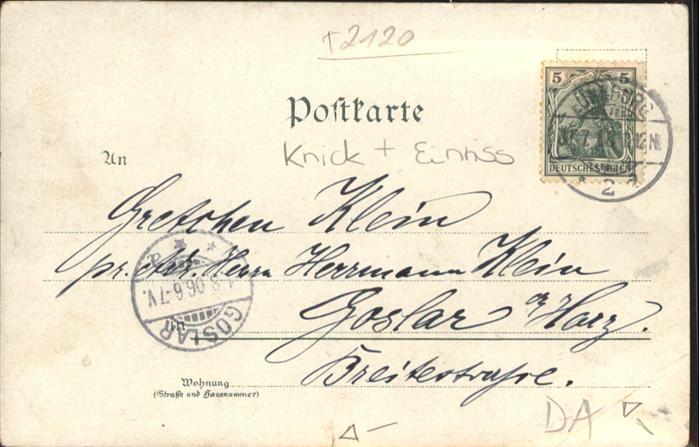 +2120
5 5
Postkarte
DEUTSCHES REICH
2
An
Knick + Einriss
Gretchen Klein
pr. Adr. Herrn Herrmann Klein
Goslar a/ Harz.
Breitestraße.
8.06.6-7V.
GOSLAR
in
Wohnung
(Straße und Hausnummer)
DA